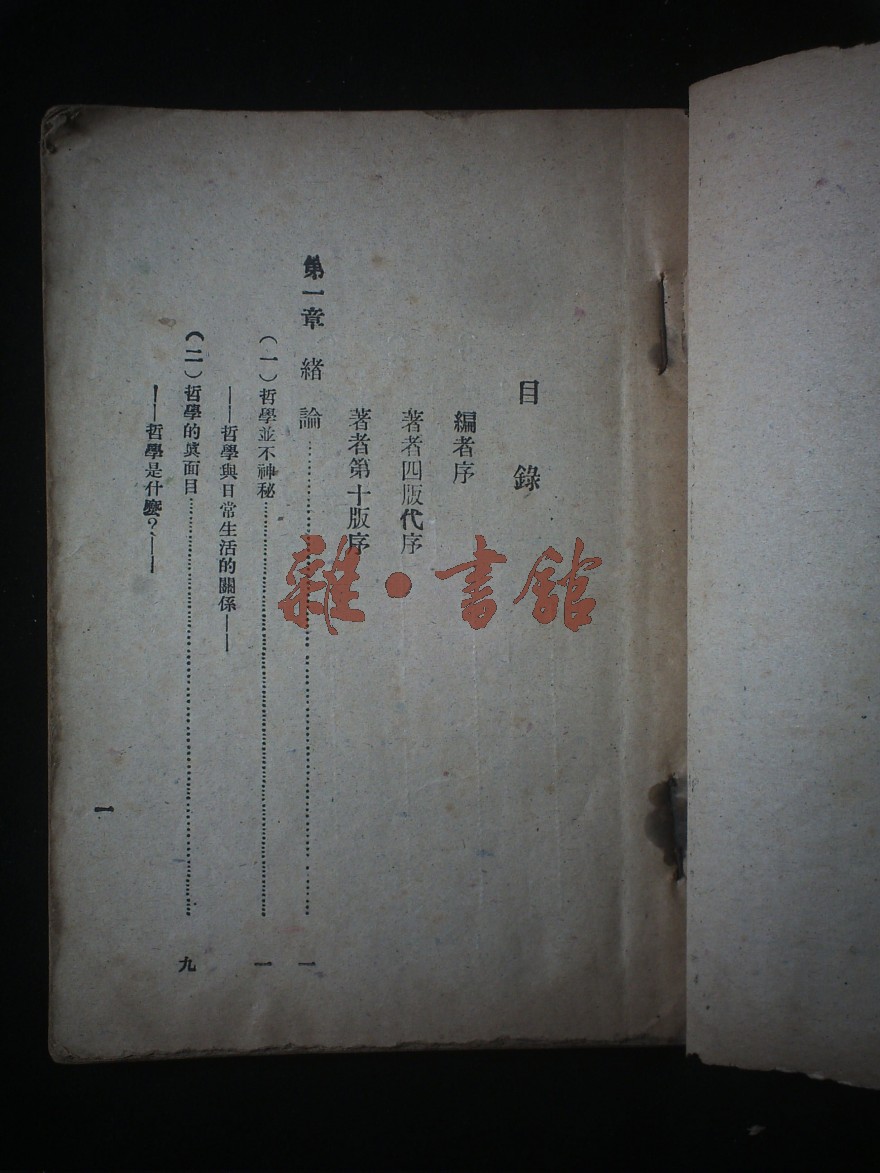 目錄
編者序
著者四版代序
著者第十版序
第一章 緒論…………………………一
(一)哲學並不神秘…………………………一
——哲學與日常生活的關係——
(二)哲學的眞面目…………………………九
——哲學是什麼?——
一
雜·書館